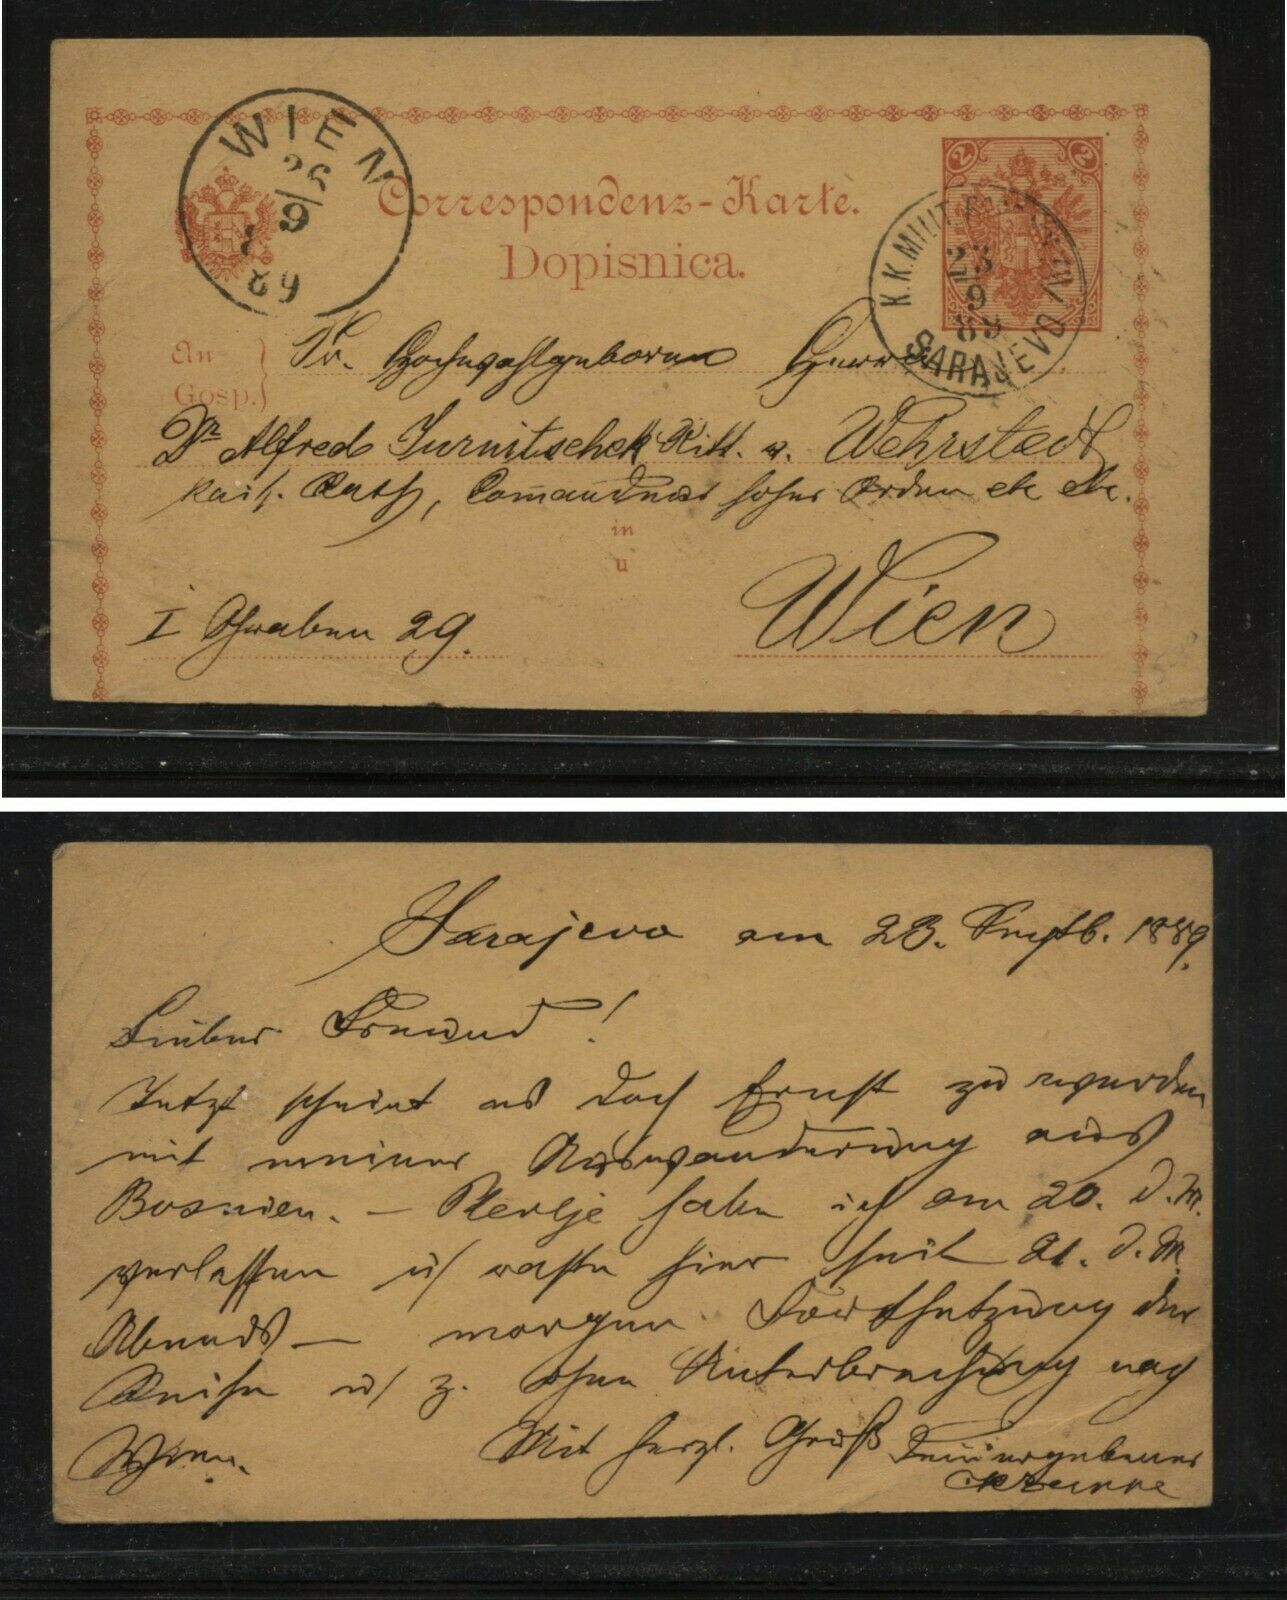 WIEN
26
9
89
Correspondenz-Karte.
Dopisnica.
2 2
K.K.MILIT.
23
9
89
SARAJEVO
An
Gosp.
Sr. Hochwohlgeboren Herrn
Dr Alfred Jurnitschek Ritt. v. Wehrstedt
kais. Rath, Comandeur hoher Orden etc etc.
in
u
I Schwaben 29.
Wien
Sarajevo am 23. Septb. 1889.
Lieber Freund!
Jetzt scheint es doch Ernst zu werden
mit meiner Auswanderung aus
Bosnien. – Plevlje habe ich am 20. d. M.
verlassen u/ raste hier seit 21. d. M.
Abends – morgen Fortsetzung der
Reise u/ z. ohne Unterbrechung nach
Wien.
Mit herzl. Gruß Dein ergebener